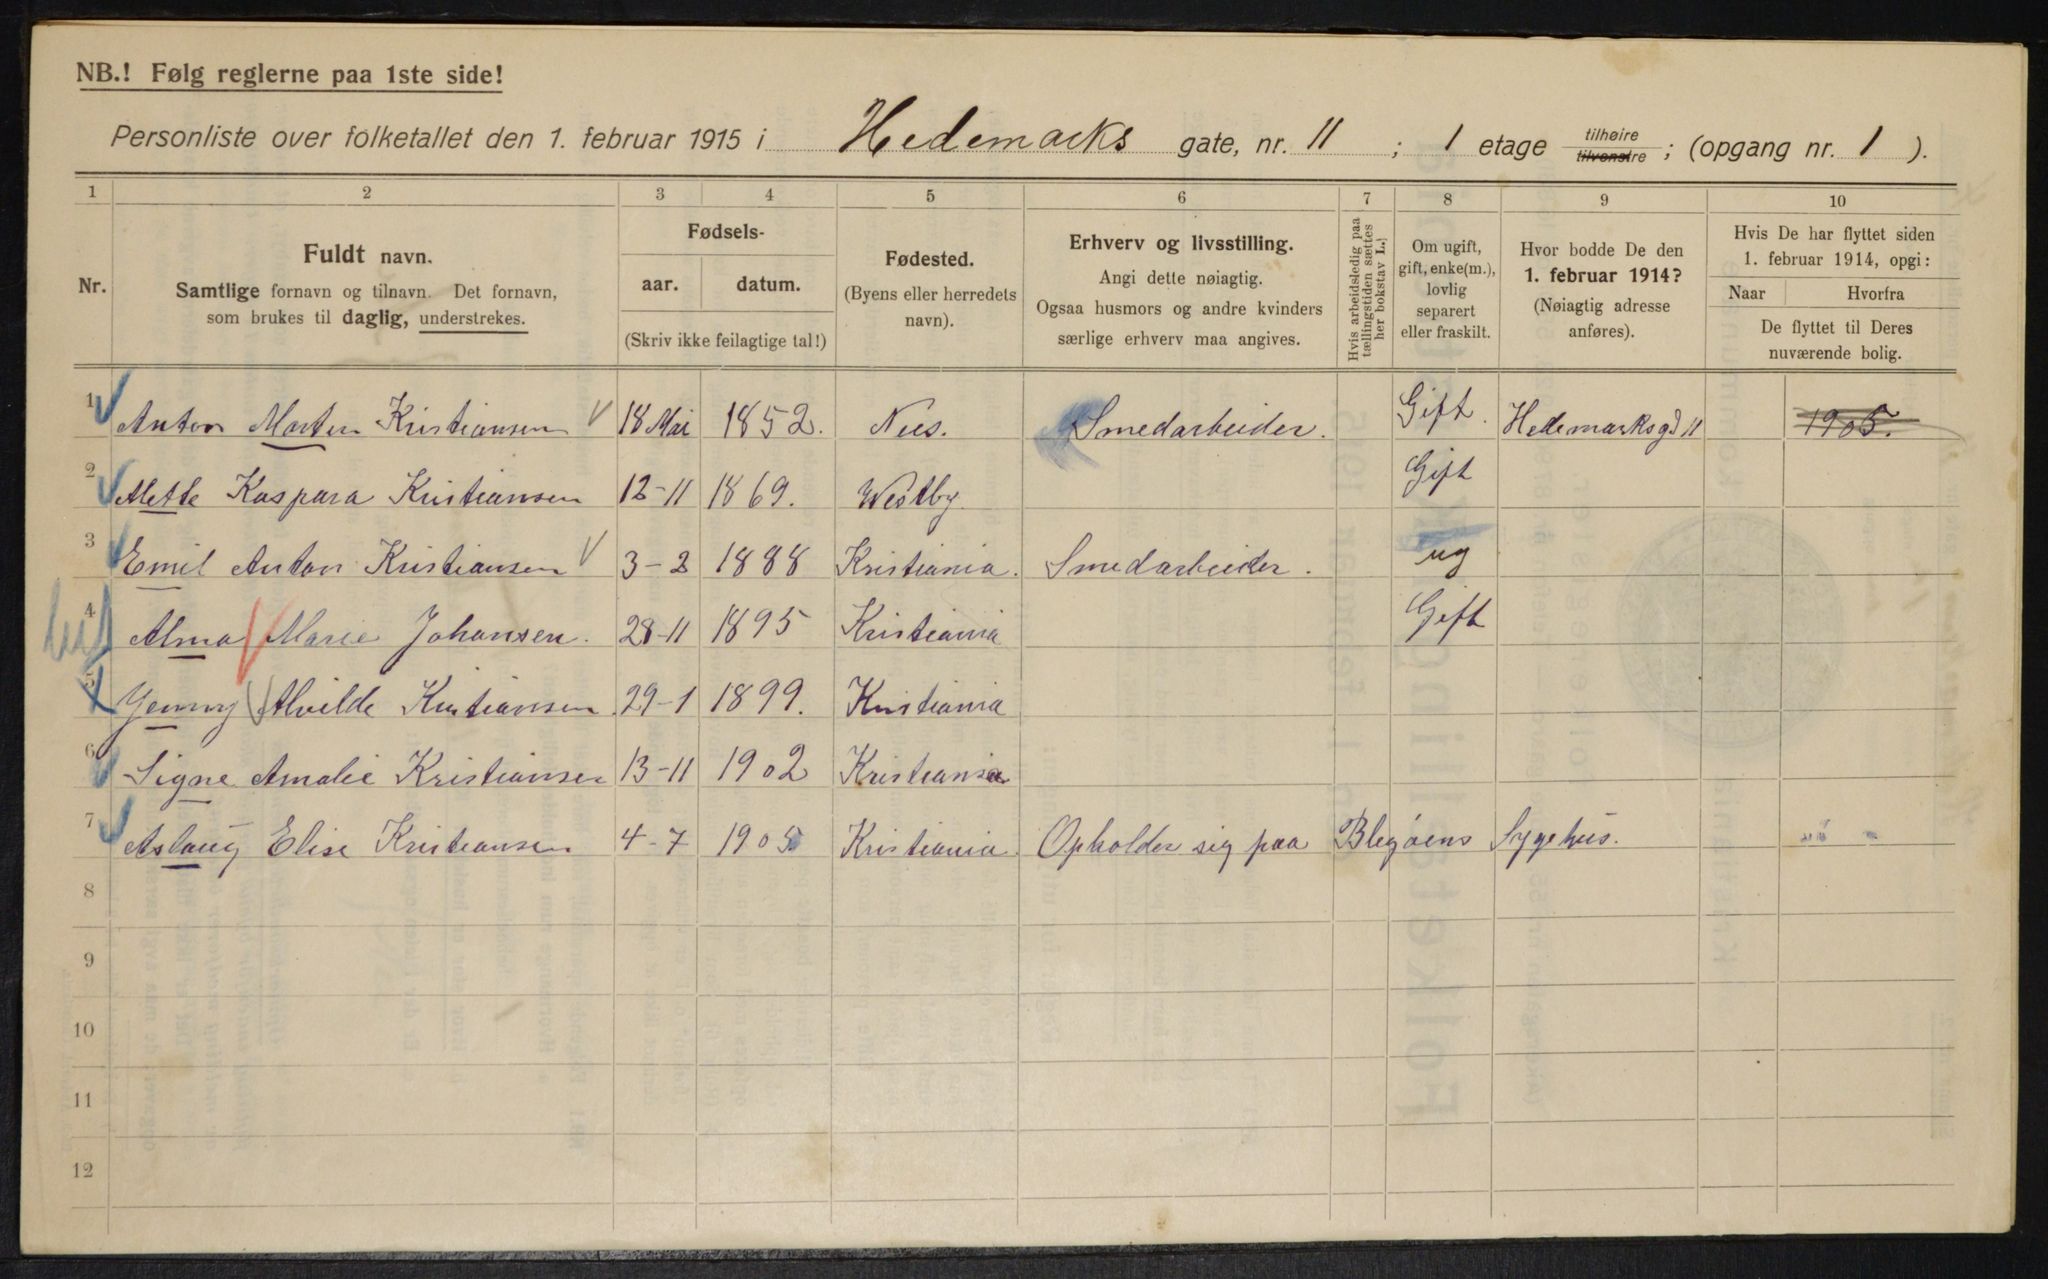 NB.! Følg reglerne paa 1ste side!
Personliste over folketallet den 1. februar 1915 i Hedemarks gate, nr. 11 ; 1 etage tilhøire tilvenstre ; (opgang nr. 1 ).
1 2 3 4 5 6 7 8 9 10
Nr.
Fuldt navn.
Samtlige fornavn og tilnavn. Det fornavn,
som brukes til daglig, understrekes.
Fødsels-
aar. datum.
(Skriv ikke feilagtige tal!)
Fødested.
(Byens eller herredets
navn).
Erhverv og livsstilling.
Angi dette nøiagtig.
Ogsaa husmors og andre kvinders
særlige erhverv maa angives.
Hvis arbeidsledig paa
tællingstiden sættes
her bokstav L.)
Om ugift,
gift, enke(m.),
lovlig
separert
eller fraskilt.
Hvor bodde De den
1. februar 1914?
(Nøiagtig adresse
anføres).
Hvis De har flyttet siden
1. februar 1914, opgi:
Naar Hvorfra
De flyttet til Deres
nuværende bolig.
1 Anton Marten Kristiansen 18 Mai 1852. Nees. Smedarbeider. Gift. Hedemarksgd 11 1905.
2 Mette Kaspara Kristiansen 12-11 1869. Westby. Gift
3 Emil Anton Kristiansen 3-2 1888 Kristiania. Smedarbeider. ug
4 Alma Marie Johansen. 28-11 1895 Kristiania Gift
5 Yenny Alvilde Kristiansen. 29-1 1899. Kristiania
6 Signe Amalie Kristiansen 13-11 1902 Kristiania
7 Aslaug Elise Kristiansen 4-7 1905 Kristiania. Opholder sig paa Blegøens Sygehus.
8
9
10
11
12